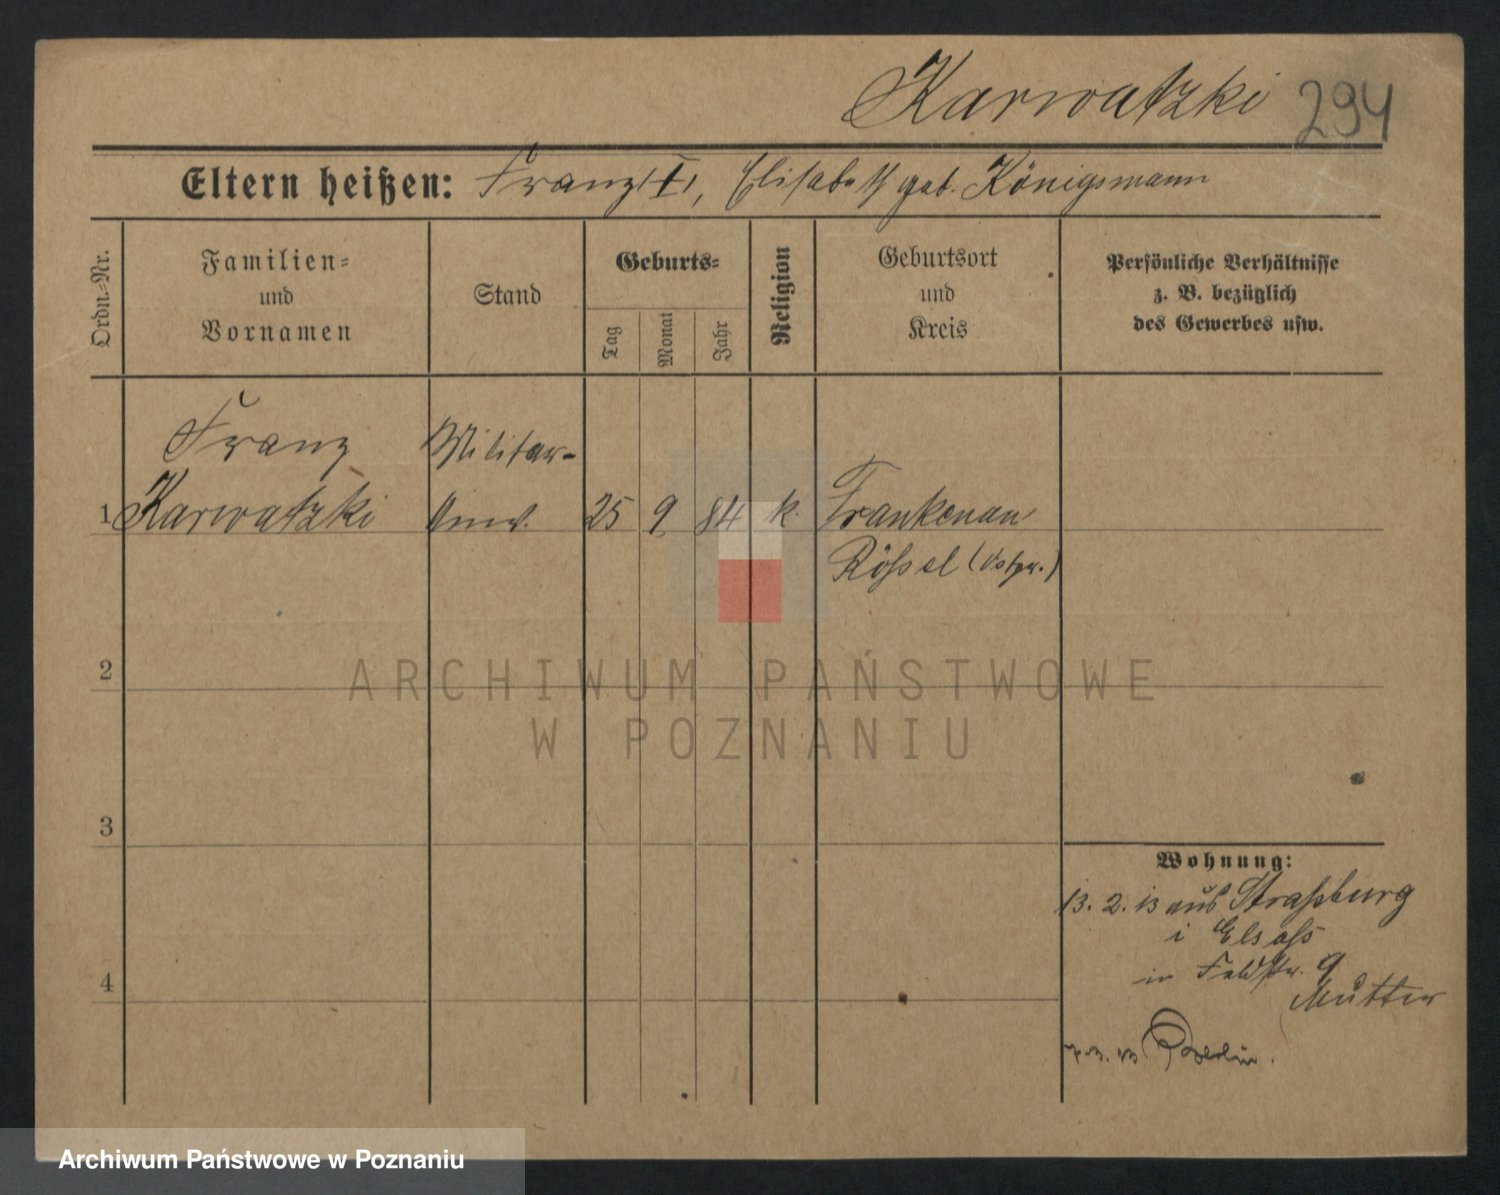 Karwatzki 294
Eltern heißen: Franz (†), Elisabeth geb. Königsmann
Ordn.-Nr.
Familien-
und
Vornamen
Stand
Geburts-
Tag
Monat
Jahr
Religion
Geburtsort
und
Kreis
Persönliche Verhältnisse
z. B. bezüglich
des Gewerbes usw.
Franz Militär-
1 Karwatzki Anw. 25 9 84 k. Frankenau
Rößel (Ostpr.)
2
3
4
Wohnung:
13. 2. 13 aus Straßburg
i Elsaß
in Feldstr. 9
Mutter
13 Berlin.
ARCHIWUM PAŃSTWOWE
W POZNANIU
Archiwum Państwowe w Poznaniu